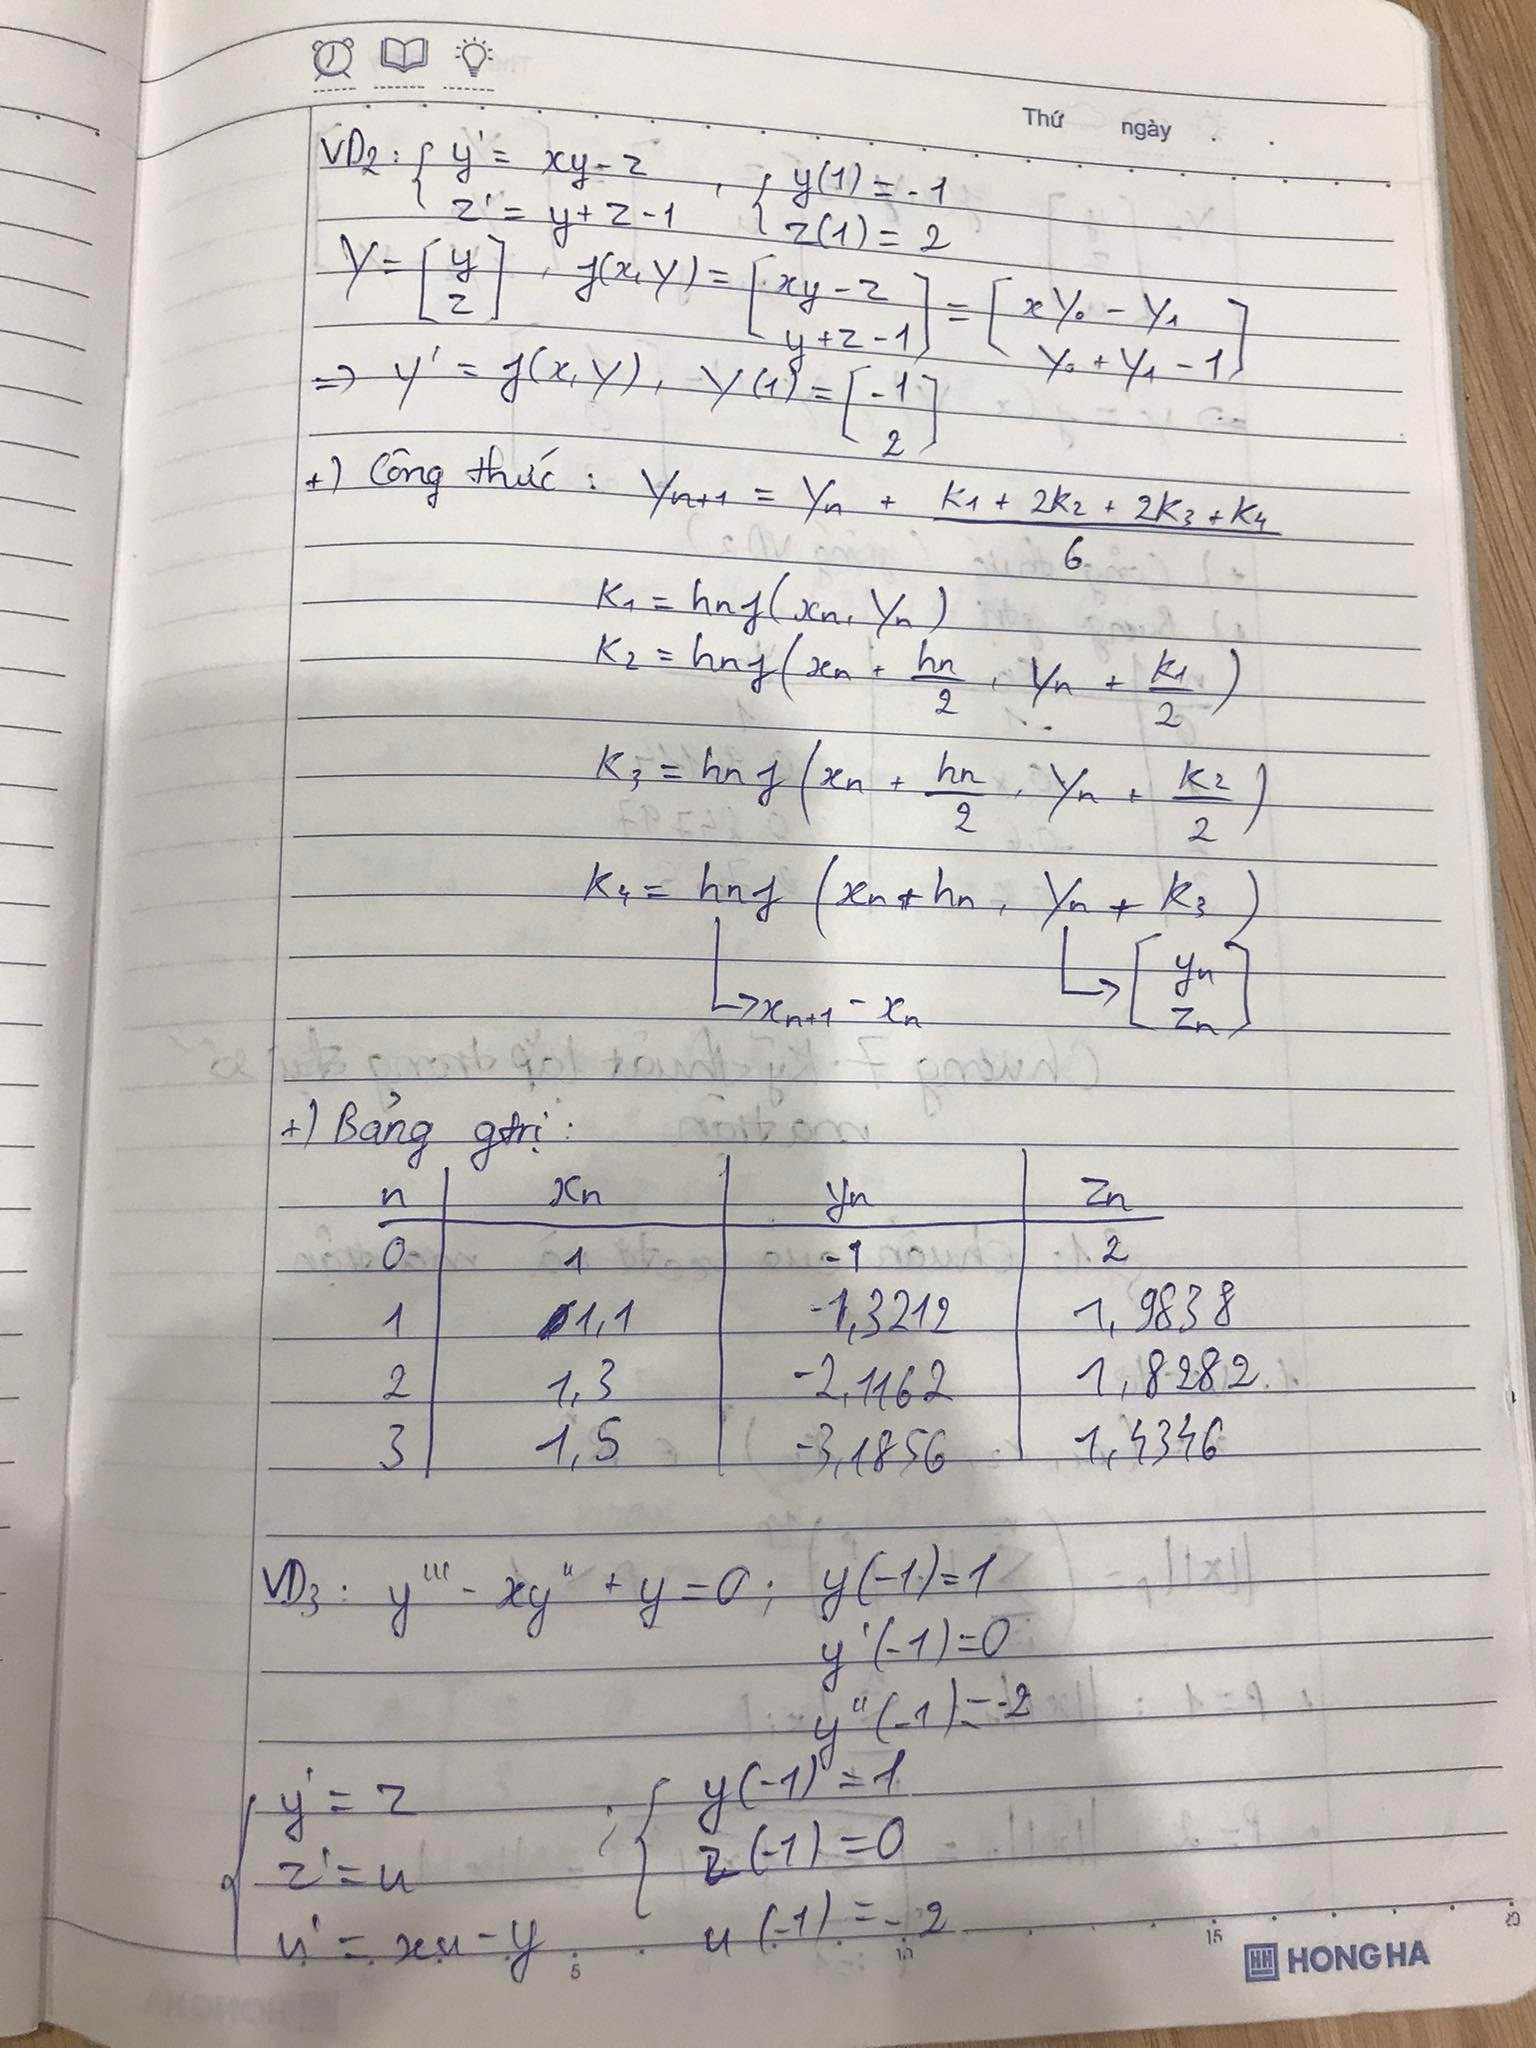 Thứ ngày
VD2: { y' = xy - z , { y(1) = -1
z' = y + z - 1 z(1) = 2
Y = [ y z ] , f(x, Y) = [ xy - z y + z - 1 ] = [ xY₀ - Y₁ Y₀ + Y₁ - 1 ]
=> Y' = f(x, Y), Y(1) = [ -1 2 ]
+) Công thức: Yn+1 = Yn + (K1 + 2K2 + 2K3 + K4) / 6
K1 = hn f(xn, Yn)
K2 = hn f(xn + hn/2, Yn + K1/2)
K3 = hn f(xn + hn/2, Yn + K2/2)
K4 = hn f(xn + hn, Yn + K3)
↳ xn+1 - xn ↳ [ yn zn ]
+) Bảng gtrị:
n xn yn zn
0 1 -1 2
1 1,1 -1,3212 1,9838
2 1,3 -2,1162 1,8282
3 1,5 -3,1856 1,4346
VD3: y''' - xy'' + y = 0; y(-1) = 1
y'(-1) = 0
y''(-1) = -2
{ y' = z ; { y(-1) = 1
z' = u z(-1) = 0
u' = xu - y u(-1) = -2
5 10 15 20
HH HONG HA